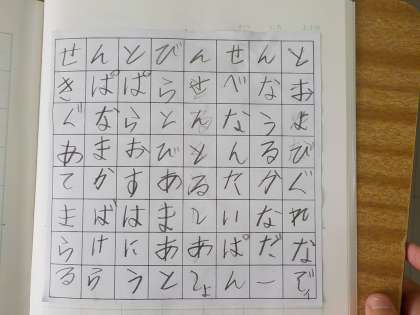 せんとびんせんと
きぱぱらせべなお
ぐならとんなうま
あまおびとんるび
てかすあるたかぐ
まばはまていなれ
らけにああぱだな
るらうとてょんーでィ